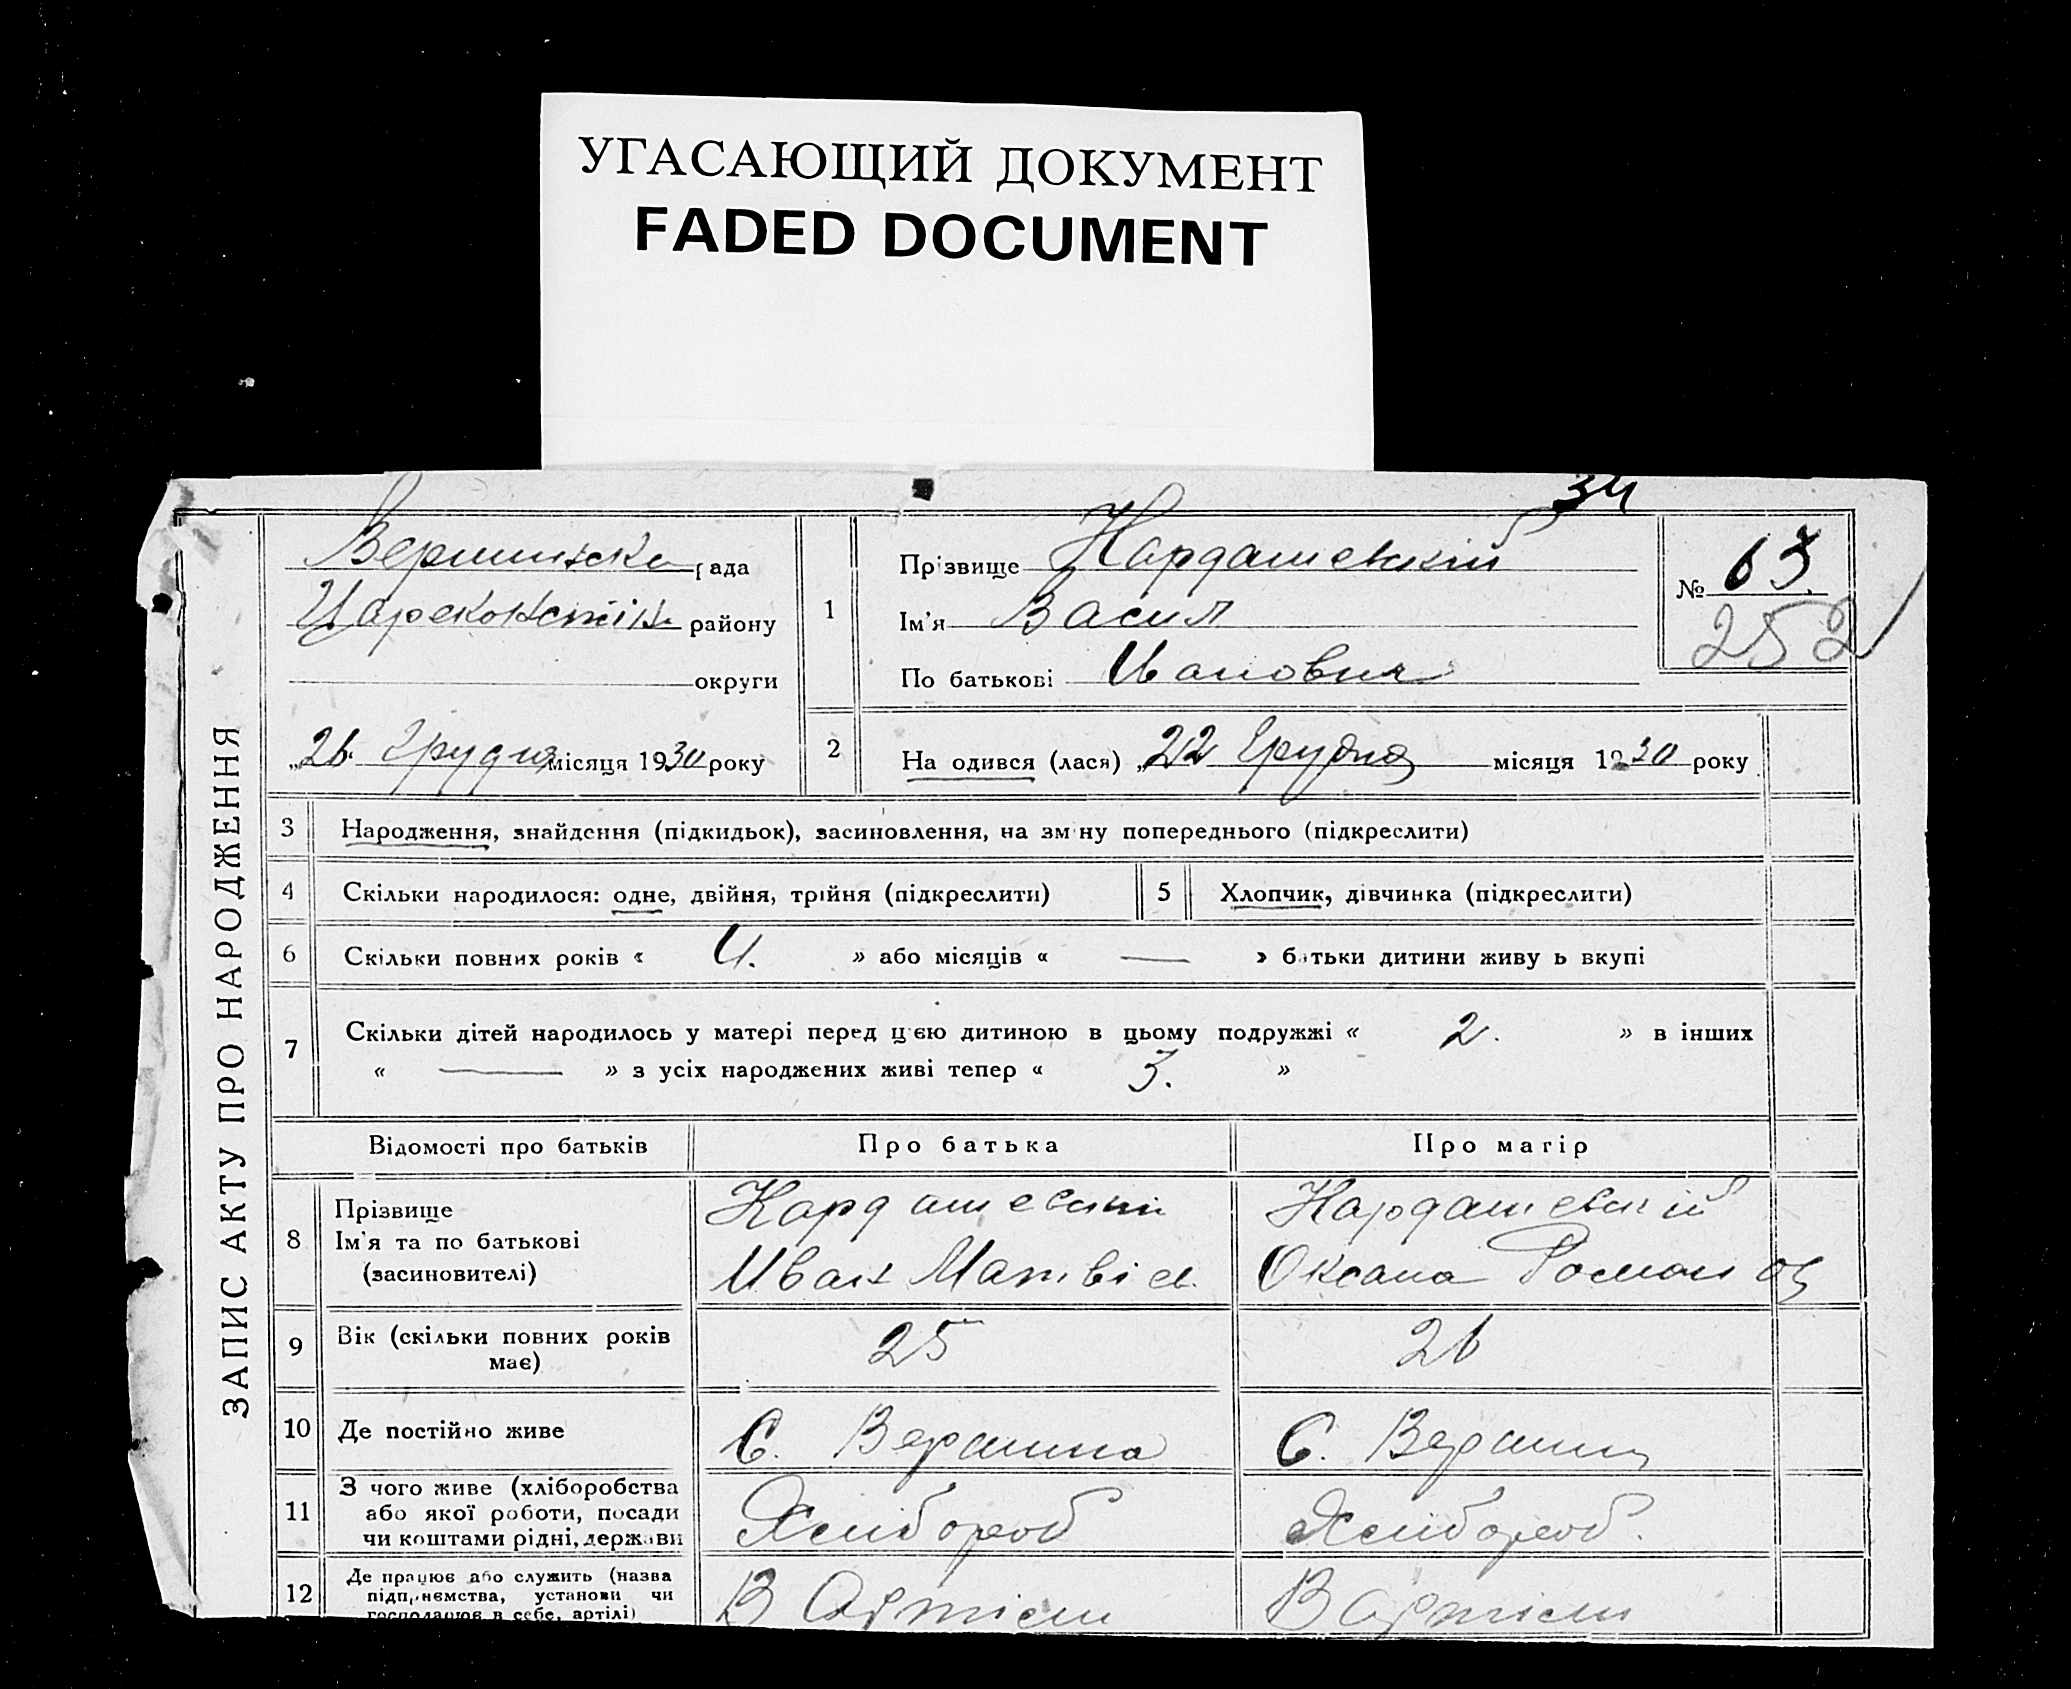 УГАСАЮЩИЙ ДОКУМЕНТ
FADED DOCUMENT
34
ЗАПИС АКТУ ПРО НАРОДЖЕННЯ
Вершинська рада
Царекостін. району
округи
„26" Грудня місяця 1930 року
1
Прізвище Кардашевский
Ім'я Васил
По батькові Иванович
№ 63.
252
2
На одився (лася) „22 Грудня місяця 1930 року
3 Народження, знайдення (підкидьок), засиновлення, на зміну попереднього (підкреслити)
4 Скільки народилося: одне, двійня, трійня (підкреслити)
5 Хлопчик, дівчинка (підкреслити)
6 Скільки повних років « 4. » або місяців « — » батьки дитини живу ь вкупі
7 Скільки дітей народилось у матері перед цією дитиною в цьому подружжі « 2. » в інших
« — » з усіх народжених живі тепер « 3. »
Відомості про батьків Про батька Про матір
8 Прізвище
Ім'я та по батькові
(засиновителі)
Кардашевский
Иван Матвіев.
Кардашевскій
Оксана Романов
9 Вік (скільки повних років
має)
25
26
10 Де постійно живе
С. Вершина
С. Вершин
11 З чого живе (хліборобства
або якої роботи, посади
чи коштами рідні, держави
Хлібороб
Хлібороб.
12 Де працює або служить (назва
підприємства, установи чи
господарює в себе, артілі)
В Артіли
В Артіли